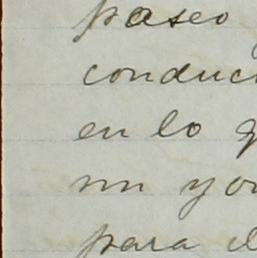 paseo
conduc
en lo q
nn yo
para el